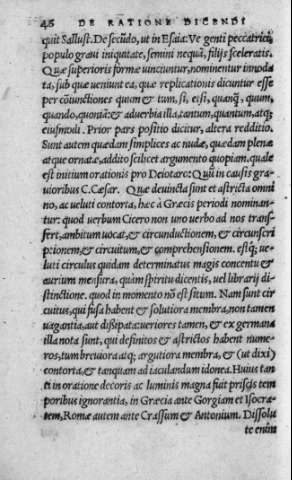 46 DE RATIONE DICENDI
quit Sallust. De secūdo, ut in Esaia: Ve genti peccatrici,
populo graui iniquitate, semini nequā, filijs sceleratis.
Quæ superioris formæ uinciuntur, nominentur innoda
ta, sub quæ ueniunt ea, quæ replicationis dicuntur esse
per cōiunctiones quum & tum, si, etsi, quanq̃, quum,
quando, quoniā: & aduerbia illa, tantum, quantum, atq;
eiusmodi. Prior pars positio dicitur, altera redditio.
Sunt autem quædam simplices ac nudæ, quædam plenæ
atque ornatæ, addito scilicet argumento quopiam, quale
est initium orationis pro Deiotaro: Quū in causis gra-
uioribus C. Cæsar. Quæ deuincta sunt et astricta omni
no, ac ueluti contorta, hæc à Græcis periodi nominan-
tur: quod uerbum Cicero non uno uerbo ad nos trans/
fert, ambitum uocat, & circunductionem, & circunscri
ptionem, & circuitum, & comprehensionem. estq; ue-
luti circulus quidam determinatus magis concentu &
aurium mensura, quàm spiritu dicentis, uel librarij di-
stinctione. quod in momento nō est situm. Nam sunt cir
cuitus, qui fusa habent & solutiora membra, non tamen
uagantia, aut dißipata: ueriores tamen, & ex germana
illa nota sunt, qui definitos & astrictos habent nume-
ros, tum breuiora atq; argutiora membra, & (ut dixi)
contorta, & tanquam ad iaculandum idonea. Huius tan
ti in oratione decoris ac luminis magna fuit priscis tem
poribus ignorantia, in Græcia ante Gorgiam et Isocra-
tem, Romæ autem ante Crassum & Antonium. Dissolu
te enim